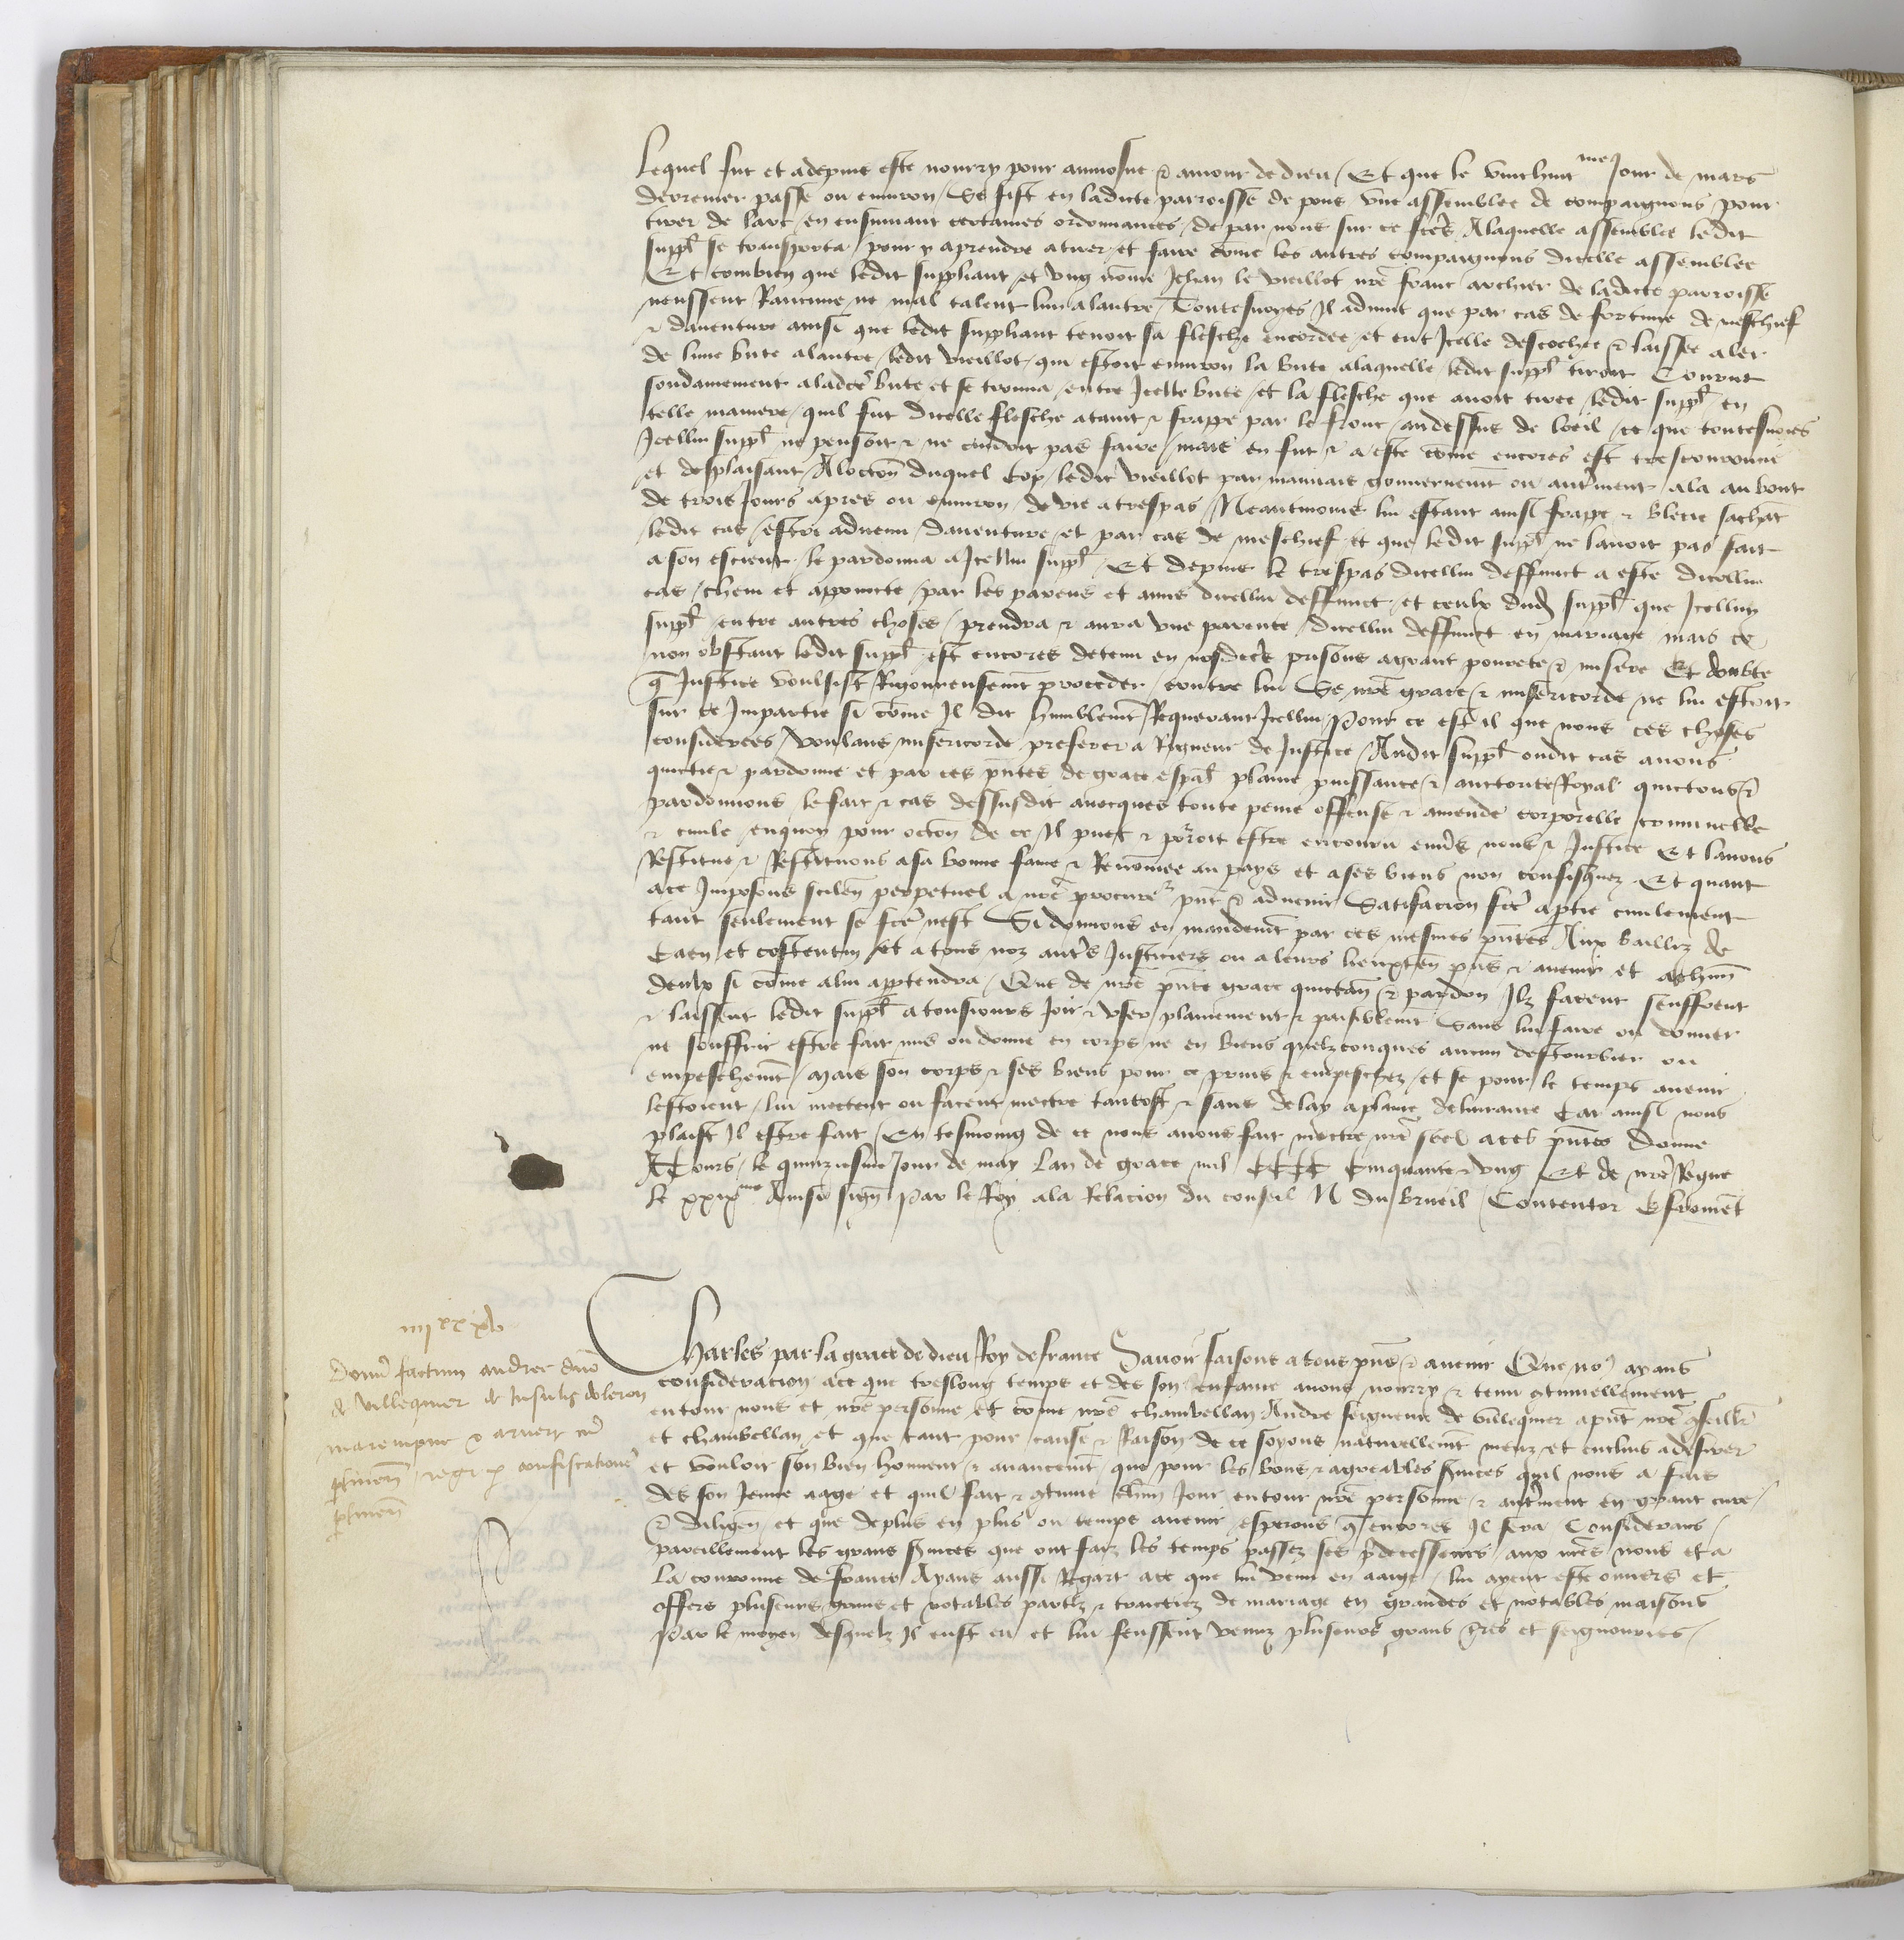 Lequel fut et a depuis este nourry pour aumosne & amour de dieu / Et que le vinthuit me Jour de mars
derrenier passe ou environ Se fist en ladicte parroisse de pous une assemblee de compaignons pour
tirer de larc en ensuivant certaines ordonnances de par nous sur ce fctes A laquelle assemblee ledit
suppl se transporta pour y aprendre a tirer et faire come les autres compaignons dicelle assemblee
Et combien que ledit suppliant et ung nome Jehan le vieillot nre franc archier de ladicte parroisse
neussent Rancune ne mal talent lun a lautre Toutesvoyes Il advint que par cas de fortune de meschief
& daventure ainsi que ledit suppliant tenoit sa flesche encordee et eut Icelle descochee & laissee aler
de lune bute a lautre ledit vieillot qui estoit environ la bute a laquelle ledit suppl tiroit Courut
soudainement a ladcte bute et se trouva entre Icelle bute et la flesche que avoit tiree ledit suppl en
telle maniere quil fut dicelle flesche ataint & frappe par le front au dessus de loeil ce que toutesvoies
Icellui suppl ne pensoit & ne cuidoit pas faire mais en fut & a este come encores est trescourroucie
et desplaisant A loccon duquel cop ledit vieillot par mauvais gouvernemt ou autrment ala au bout
de trois Jours apres ou environ de vie a trespas Neantmoins lui estant ainsi frappe & blecie sachat
ledit cas estre advenu daventure et par cas de meschief et que ledit suppl ne lavoit pas fait
a son escient le pardonna a Icellui suppl Et depuis le trespas dicellui deffunct a este dicellui
cas chevi et appoincte par les parens et amis dicellui deffunct et ceulx dud suppl que Icellui
suppl entre autres choses prendra & aura une parente dicellui deffunct en mariage mais ce
non obstant ledit suppl est encores detenu en nosdictes prisons a grant povrete & misere Et doubte
q Justice voulsist Rigoureusemt proceder contre lui Se nre grace & misericorde ne lui estoit
sur ce Impartie si come Il dit humblemt Requerant Icellui / Pour ce est il que nous ces choses
considerees voulans misericorde preferer a Rigueur de Justice Audit suppl oudit cas avons
quictie & pardonne et par ces pntes de grace espal plaine puissance & auctorite Royal quictons &
pardonnons le fait & cas dessusdit avecques toute peine offense & amende corporelle criminelle
& civile en quoy pour occon de ce Il puet & porroit estre encouru envrs nous & Justice Et lavons
Restitue & Restituons a sa bonne fame & Renomee au pays et a ses biens non confisquez Et quant
a ce Imposons scilen perpetuel a nre procureur pnt & advenir Satisfacion fce a ptie civilement
tant seulement se fce nest Si donnons en mandemt par ces mesmes pntes Aux bailliz de
Caen et costentin et a tous noz autrs Justiciers ou a leurs lieuxten pns & avenir et a chun
deulx si come a lui appartendra Que de nre pnte grace quictan & pardon Ilz facent seuffrent
& laissent ledit suppl a tousiours Joir & user plainement & paisiblemt Sans lui faire ou donner
ne souffrir estre fait mis ou donne en corps ne en biens quelzconques aucun destourbier ou
empeschemt Mais son corps & ses biens pour ce prins & empeschez et se pour le temps avenir
lestoient lui mectent ou facent mectre tantost & sans delay a plaine delivrance Car ainsi nous
plaist Il estre fait En tesmoing de ce nous avons fait mectre nre seel a ces pntes Donne
A Tours le quinziesme Jour de may Lan de grace mil CCCC Cinquante & ung Et de nre Regne
le xxix me Ainsi sign Par le Roy a la Relacion du conseil N du brueil Contentor E froment
iiii xx xv
Charles par la grace de dieu Roy de france Savoir faisons a tous pns & avenir Que no9 ayans
Donu factum andree dno
consideracion a ce que treslong temps et des son enfance avons nourry & tenu gtinuellement
de villequier de Insulis doleron
entour nous et nre personne et come nre chambellan Andre seigneur de villequier a pnt nre gseillr
marempne & arvert
et chambellan et que tant pour cause & Raison de ce soyons naturellemt meuz et enclins a desirer
regi p confiscatione
et vouloir son bien honneur & avancemt que pour les bons & agreables svices quil nous a fais
des son Jeune aage et quil fait & gtinue chun Jour entour nre personne & autrment en grant cure
& diligen et que de plus en plus ou temps avenir esperons q encores Il fera Considerans
pareillement les grans svices que ont faiz les temps passez ses pdecesseurs aux nres nous et a
la couronne de france Ayans aussi Regart a ce que lui venu en aage lui ayent este ouvers et
offers pluseurs grans et notables partiz & traictiez de mariage en grandes et notables maisons
Par le moyen desquelz Il eust eu et lui feussent venuz pluseurs grans tres et seigneuries